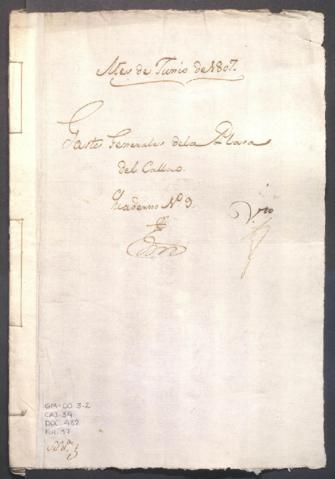 Mes de Junio de 1807.
Gastos Generales dela Plasa
del Callao.
Quaderno Nº 9.
GM-CO 3-2
CAJ. 34
DOC. 487
FOL. 37